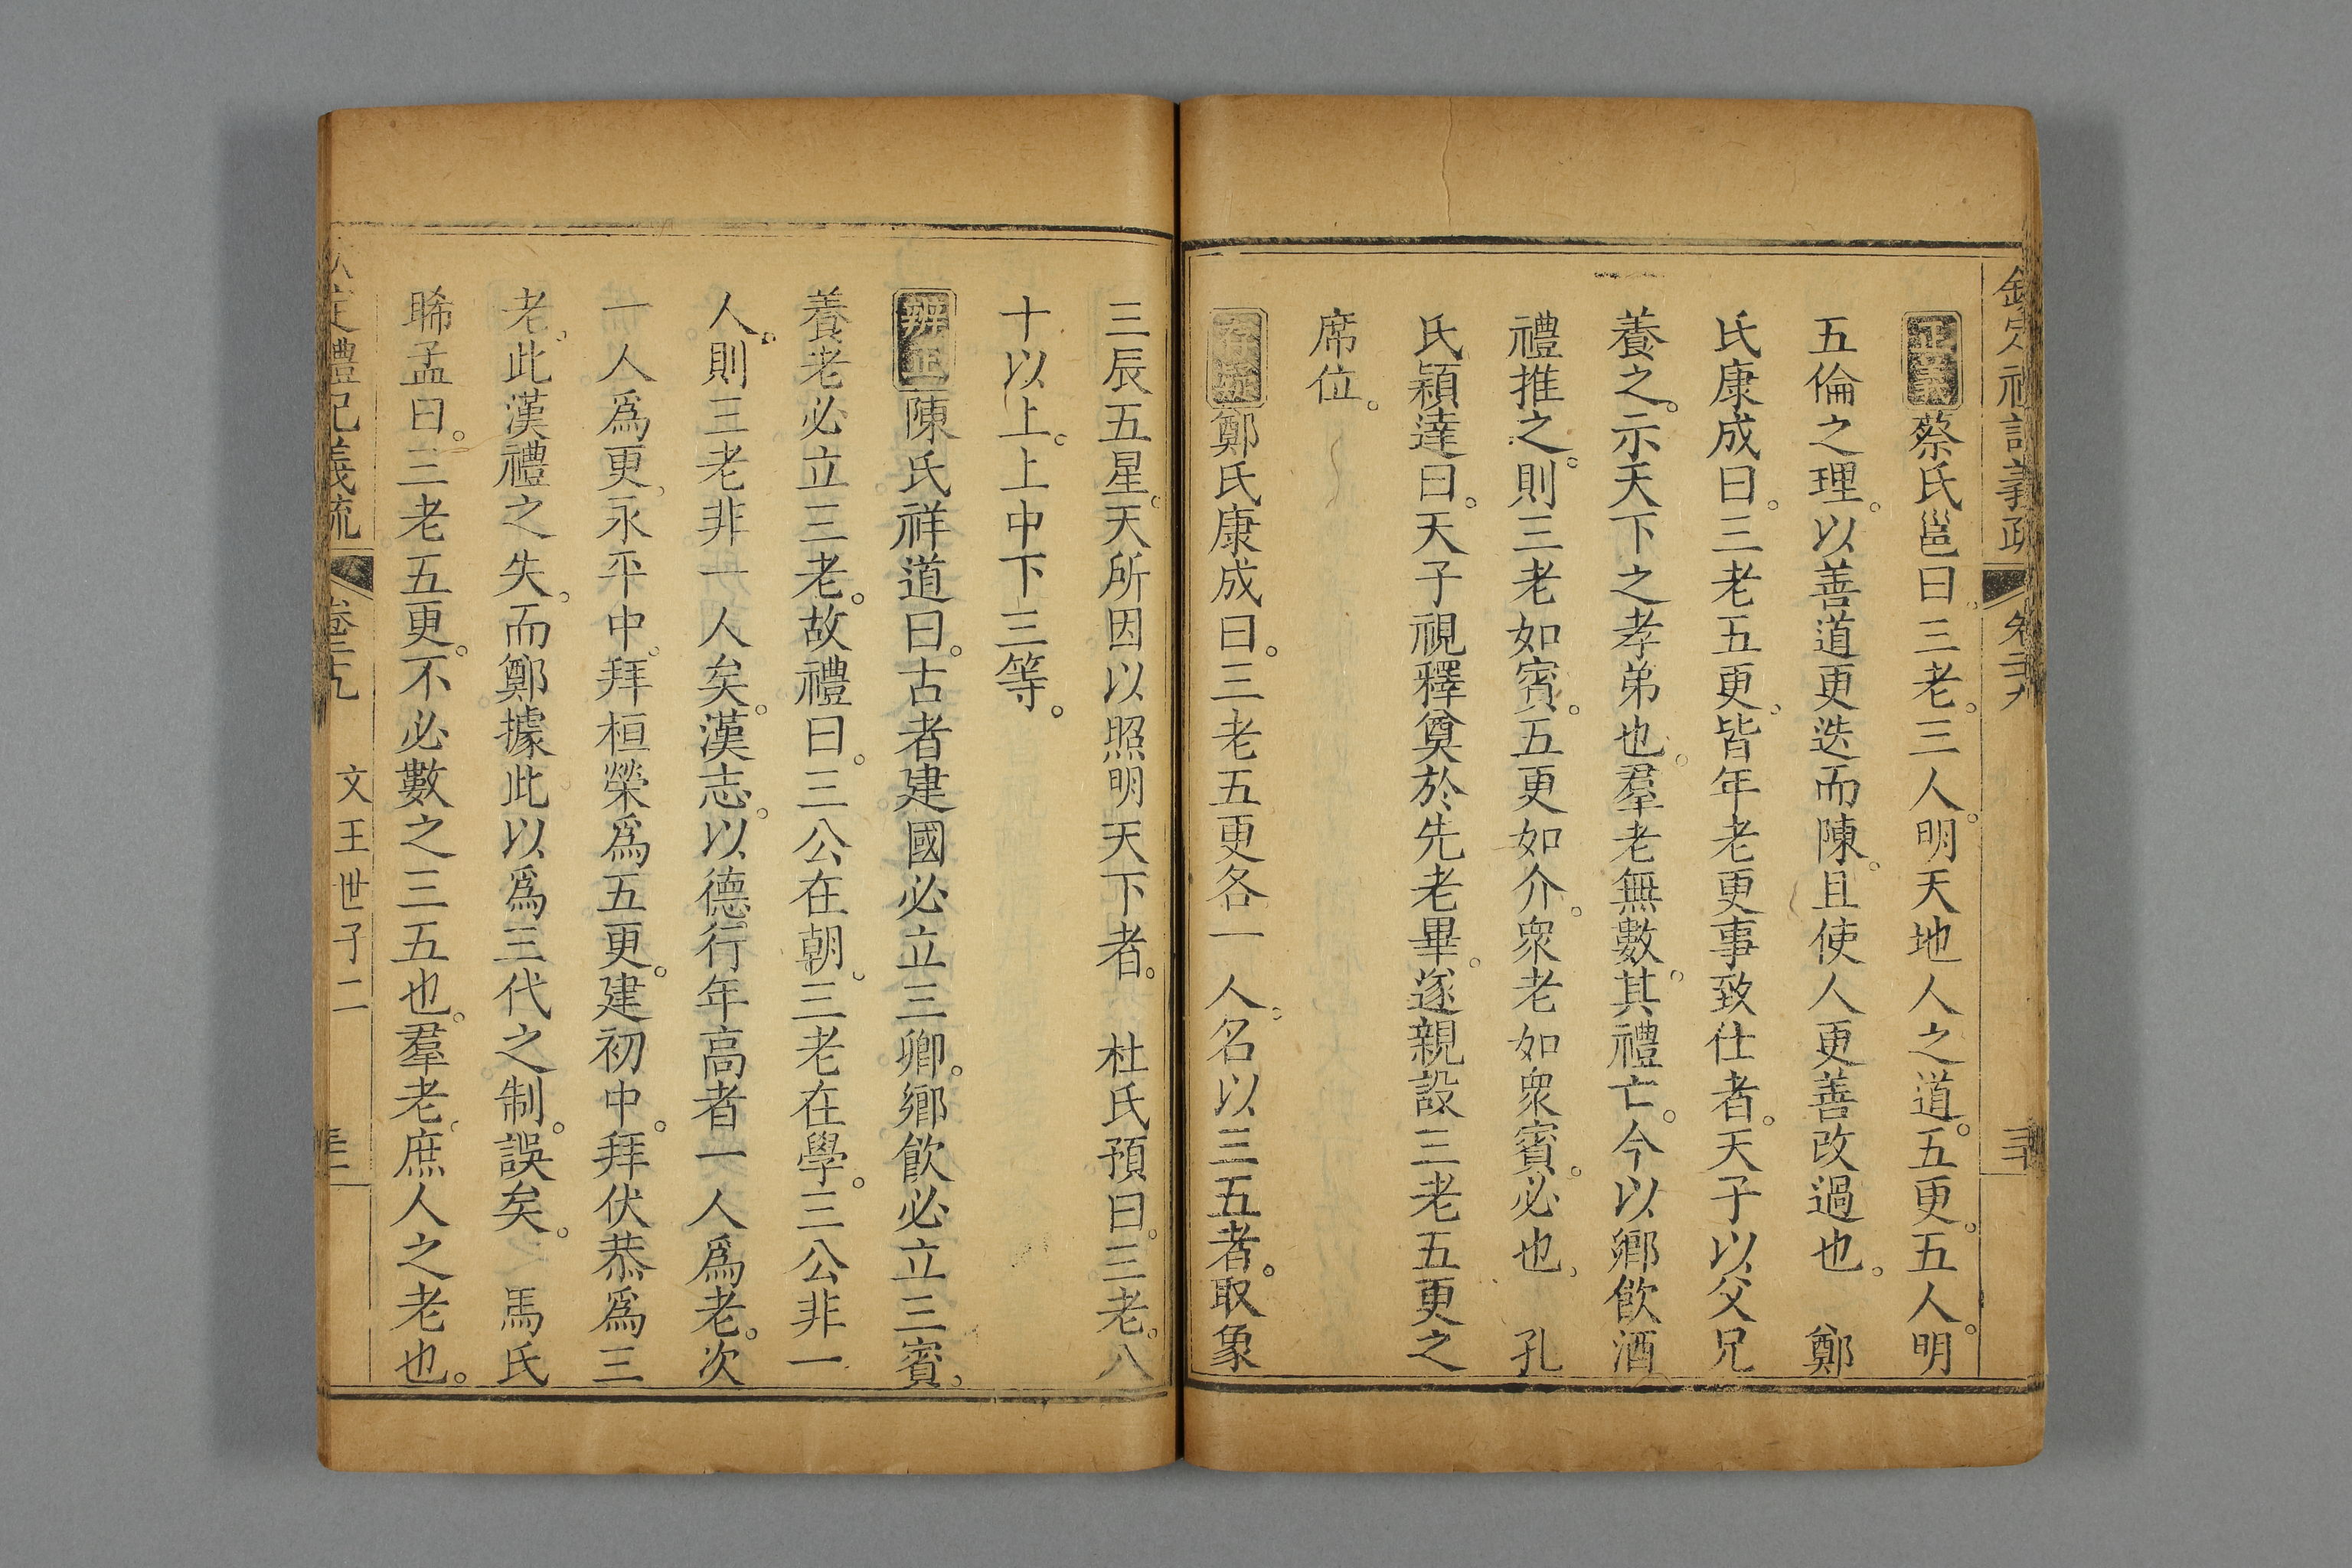 欽定禮記義疏 卷二十九 三十
正義蔡氏邕曰三老三人明天地人之道五更五人明
五倫之理以善道更迭而陳且使人更善改過也 鄭
氏康成曰三老五更皆年老更事致仕者天子以父兄
養之示天下之孝弟也羣老無數其禮亡今以鄉飲酒
禮推之則三老如賓五更如介衆老如衆賓必也 孔
氏穎達曰天子視釋奠於先老畢遂親設三老五更之
席位
存疑鄭氏康成曰三老五更各一人名以三五者取象
三辰五星天所因以照明天下者 杜氏預曰三老八
十以上上中下三等
辨正陳氏祥道曰古者建國必立三卿鄉飲必立三賓
養老必立三老故禮曰三公在朝三老在學三公非一
人則三老非一人矣漢志以德行年高者一人爲老次
一人爲更永平中拜桓榮爲五更建初中拜伏恭爲三
老此漢禮之失而鄭據此以爲三代之制誤矣 馬氏
睎孟曰三老五更不必數之三五也羣老庶人之老也
欽定禮記義疏 卷二十九 文王世子二